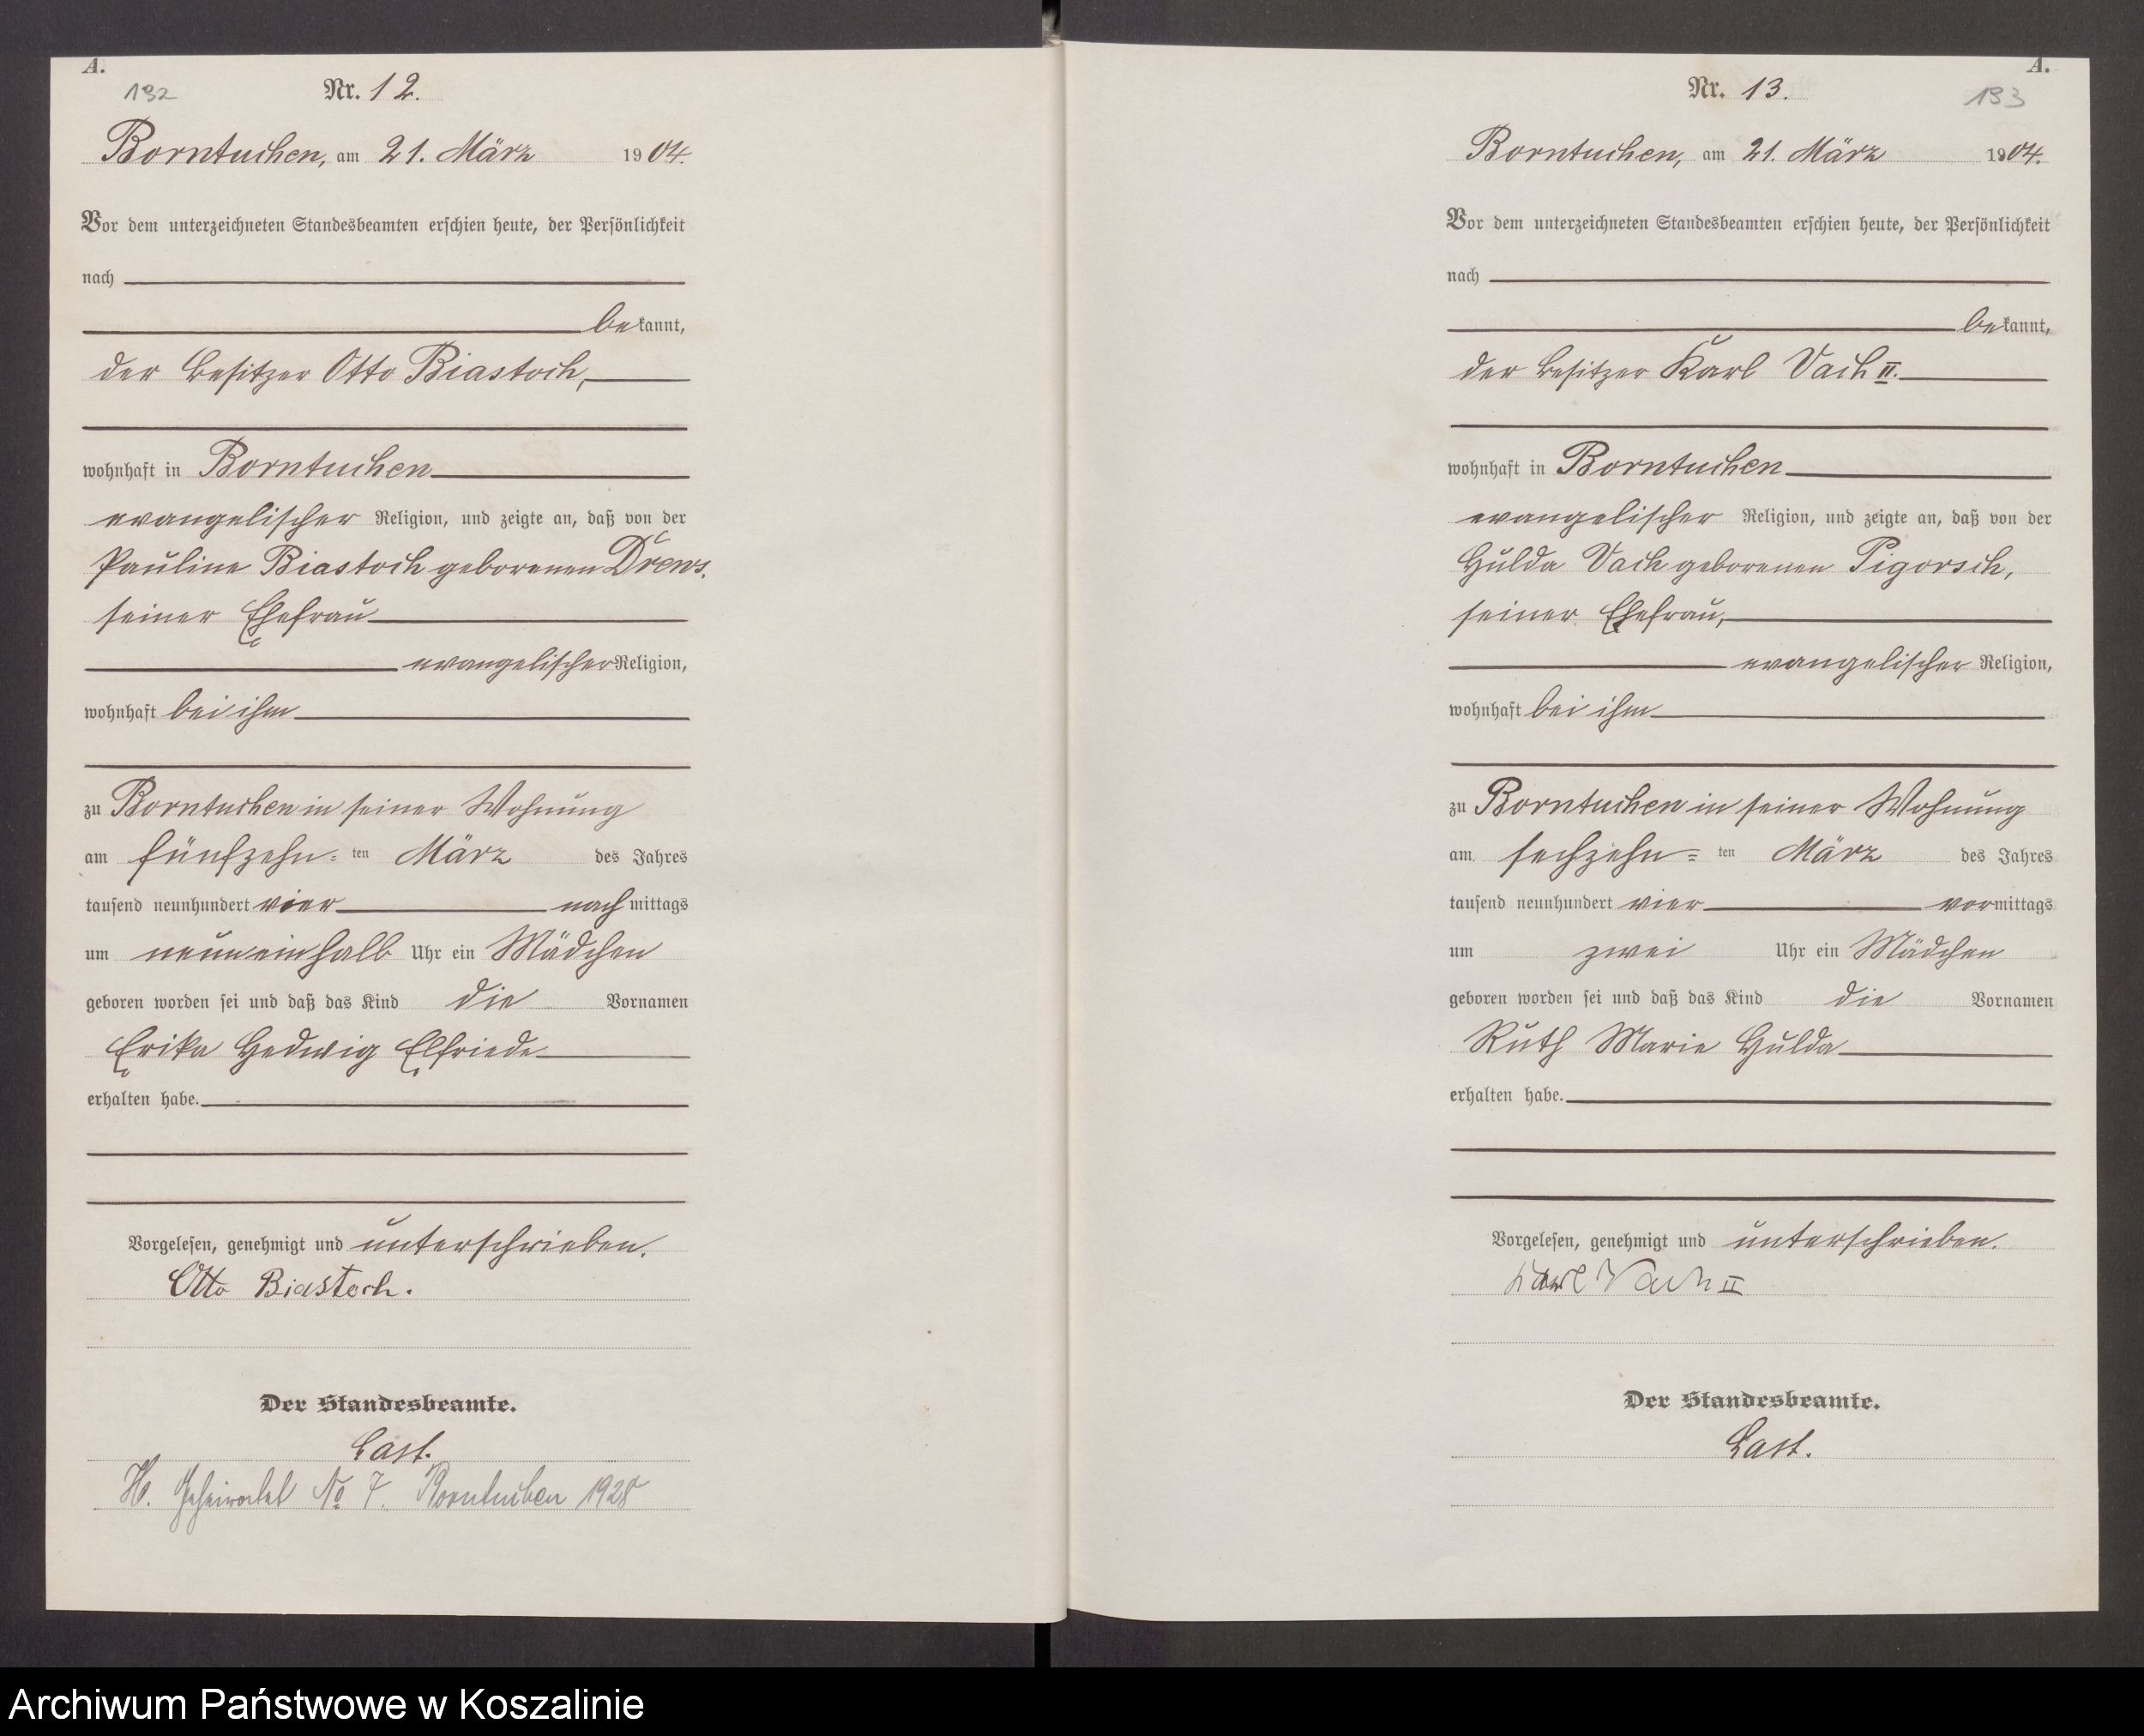 A.
132
Nr. 12.
Borntuchen, am 21. März 1904.
Vor dem unterzeichneten Standesbeamten erschien heute, der Persönlichkeit
nach
bekannt,
der Besitzer Otto Biastoch,
wohnhaft in Borntuchen
evangelischer Religion, und zeigte an, daß von der
Pauline Biastoch geborenen Drews,
seiner Ehefrau
evangelischer Religion,
wohnhaft bei ihm
zu Borntuchen in seiner Wohnung
am fünfzehn=ten März des Jahres
tausend neunhundert vier nachmittags
um neuneinhalb Uhr ein Mädchen
geboren worden sei und daß das Kind die Vornamen
Erika Hedwig Elfriede
erhalten habe.
Vorgelesen, genehmigt und unterschrieben.
Otto Biastoch.
Der Standesbeamte.
Last.
H. Geheiratet No 7. Borntuchen 1928
A.
133
Nr. 13.
Borntuchen, am 21. März 1904.
Vor dem unterzeichneten Standesbeamten erschien heute, der Persönlichkeit
nach
bekannt,
der Besitzer Karl Vach II.
wohnhaft in Borntuchen
evangelischer Religion, und zeigte an, daß von der
Hulda Vach geborenen Pigorsch,
seiner Ehefrau,
evangelischer Religion,
wohnhaft bei ihm
zu Borntuchen in seiner Wohnung
am sechzehn=ten März des Jahres
tausend neunhundert vier vormittags
um zwei Uhr ein Mädchen
geboren worden sei und daß das Kind die Vornamen
Ruth Marie Hulda
erhalten habe.
Vorgelesen, genehmigt und unterschrieben.
Karl Vach II
Der Standesbeamte.
Last.
Archiwum Państwowe w Koszalinie